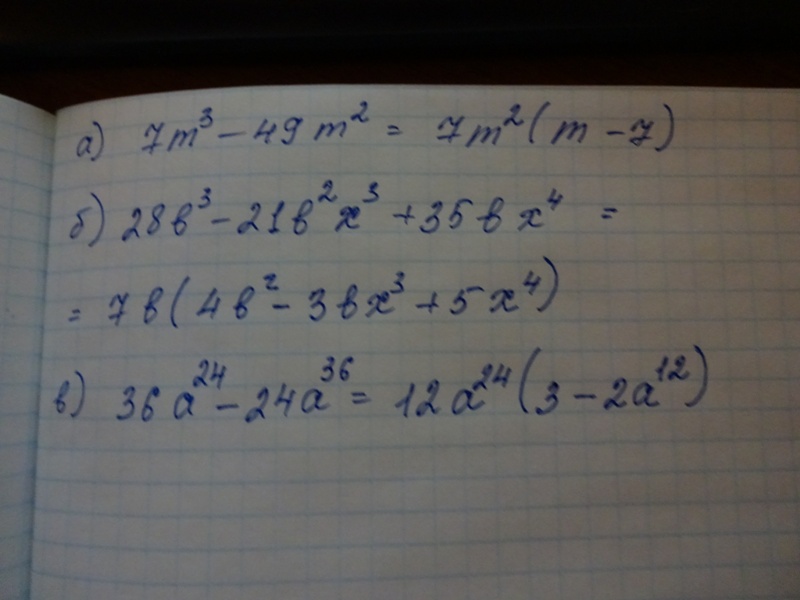 а) 7m³ − 49m² = 7m²(m − 7)
б) 28в³ − 21в²x³ + 35вx⁴ =
= 7в(4в² − 3вx³ + 5x⁴)
в) 36a²⁴ − 24a³⁶ = 12a²⁴(3 − 2a¹²)